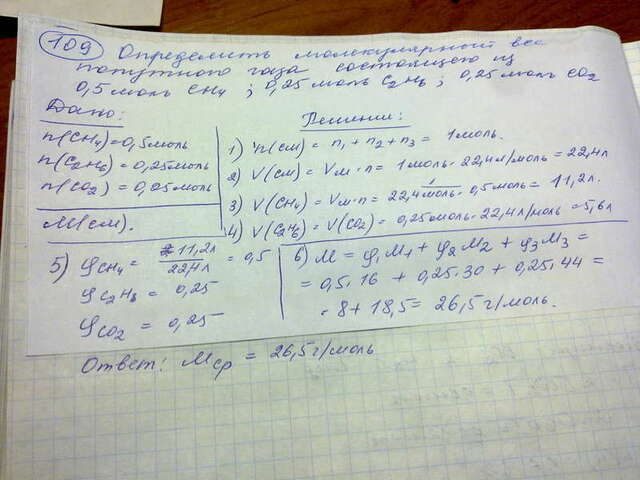 109 Определить молекулярный вес
попутного газа состоящего из
0,5 моль CH4 ; 0,25 моль C2H6 ; 0,25 моль CO2
Дано:
n(CH4)=0,5моль
n(C2H6)=0,25моль
n(CO2)=0,25моль
M(см).
Решение:
1) n(см) = n1 + n2 + n3 = 1 моль.
2) V(см) = Vм · n = 1 моль · 22,4 л/моль = 22,4 л
3) V(CH4) = Vм · n = 22,4 л/моль · 0,5 моль = 11,2 л.
4) V(C2H6) = V(CO2) = 0,25 моль · 22,4 л/моль = 5,6 л
5) φCH4 = 11,2л / 22,4л = 0,5
φC2H6 = 0,25
φCO2 = 0,25
6) M = φ1M1 + φ2M2 + φ3M3 =
= 0,5 · 16 + 0,25 · 30 + 0,25 · 44 =
= 8 + 18,5 = 26,5 г/моль.
Ответ: Mср = 26,5 г/моль